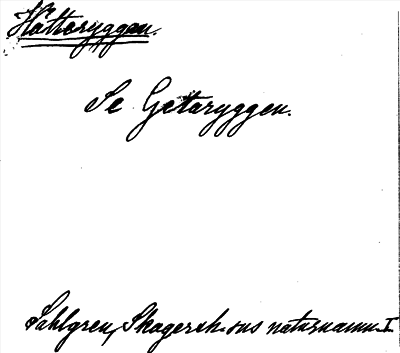 Hätteryggen.
Se Getaryggen.
Sahlgren, Skagersh.sns naturnamn. I